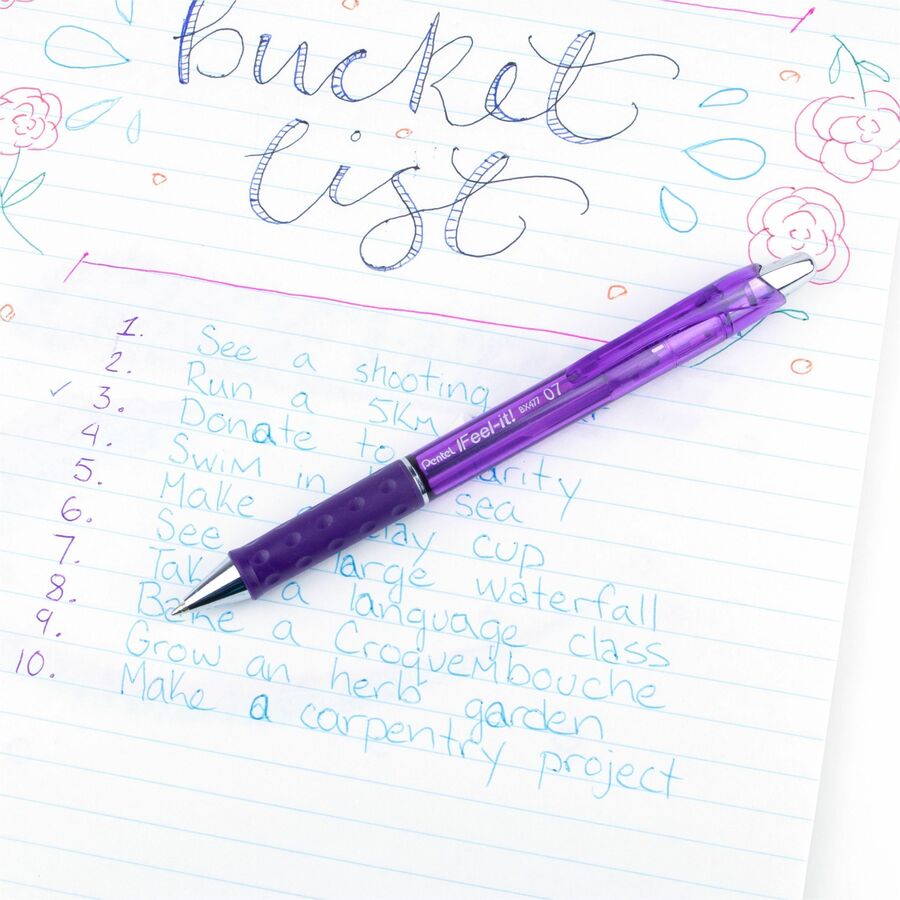 bucket
list
1. See a shooting
2. Run a 5Km
✓ 3. Donate to arity
4. Swim in sea
5. Make lay cup
6. See large waterfall
7. Tak a language class
8. Bake a Croquembouche
9. Grow an herb garden
10. Make a carpentry project
Pentel IFeel-it! BX477 07